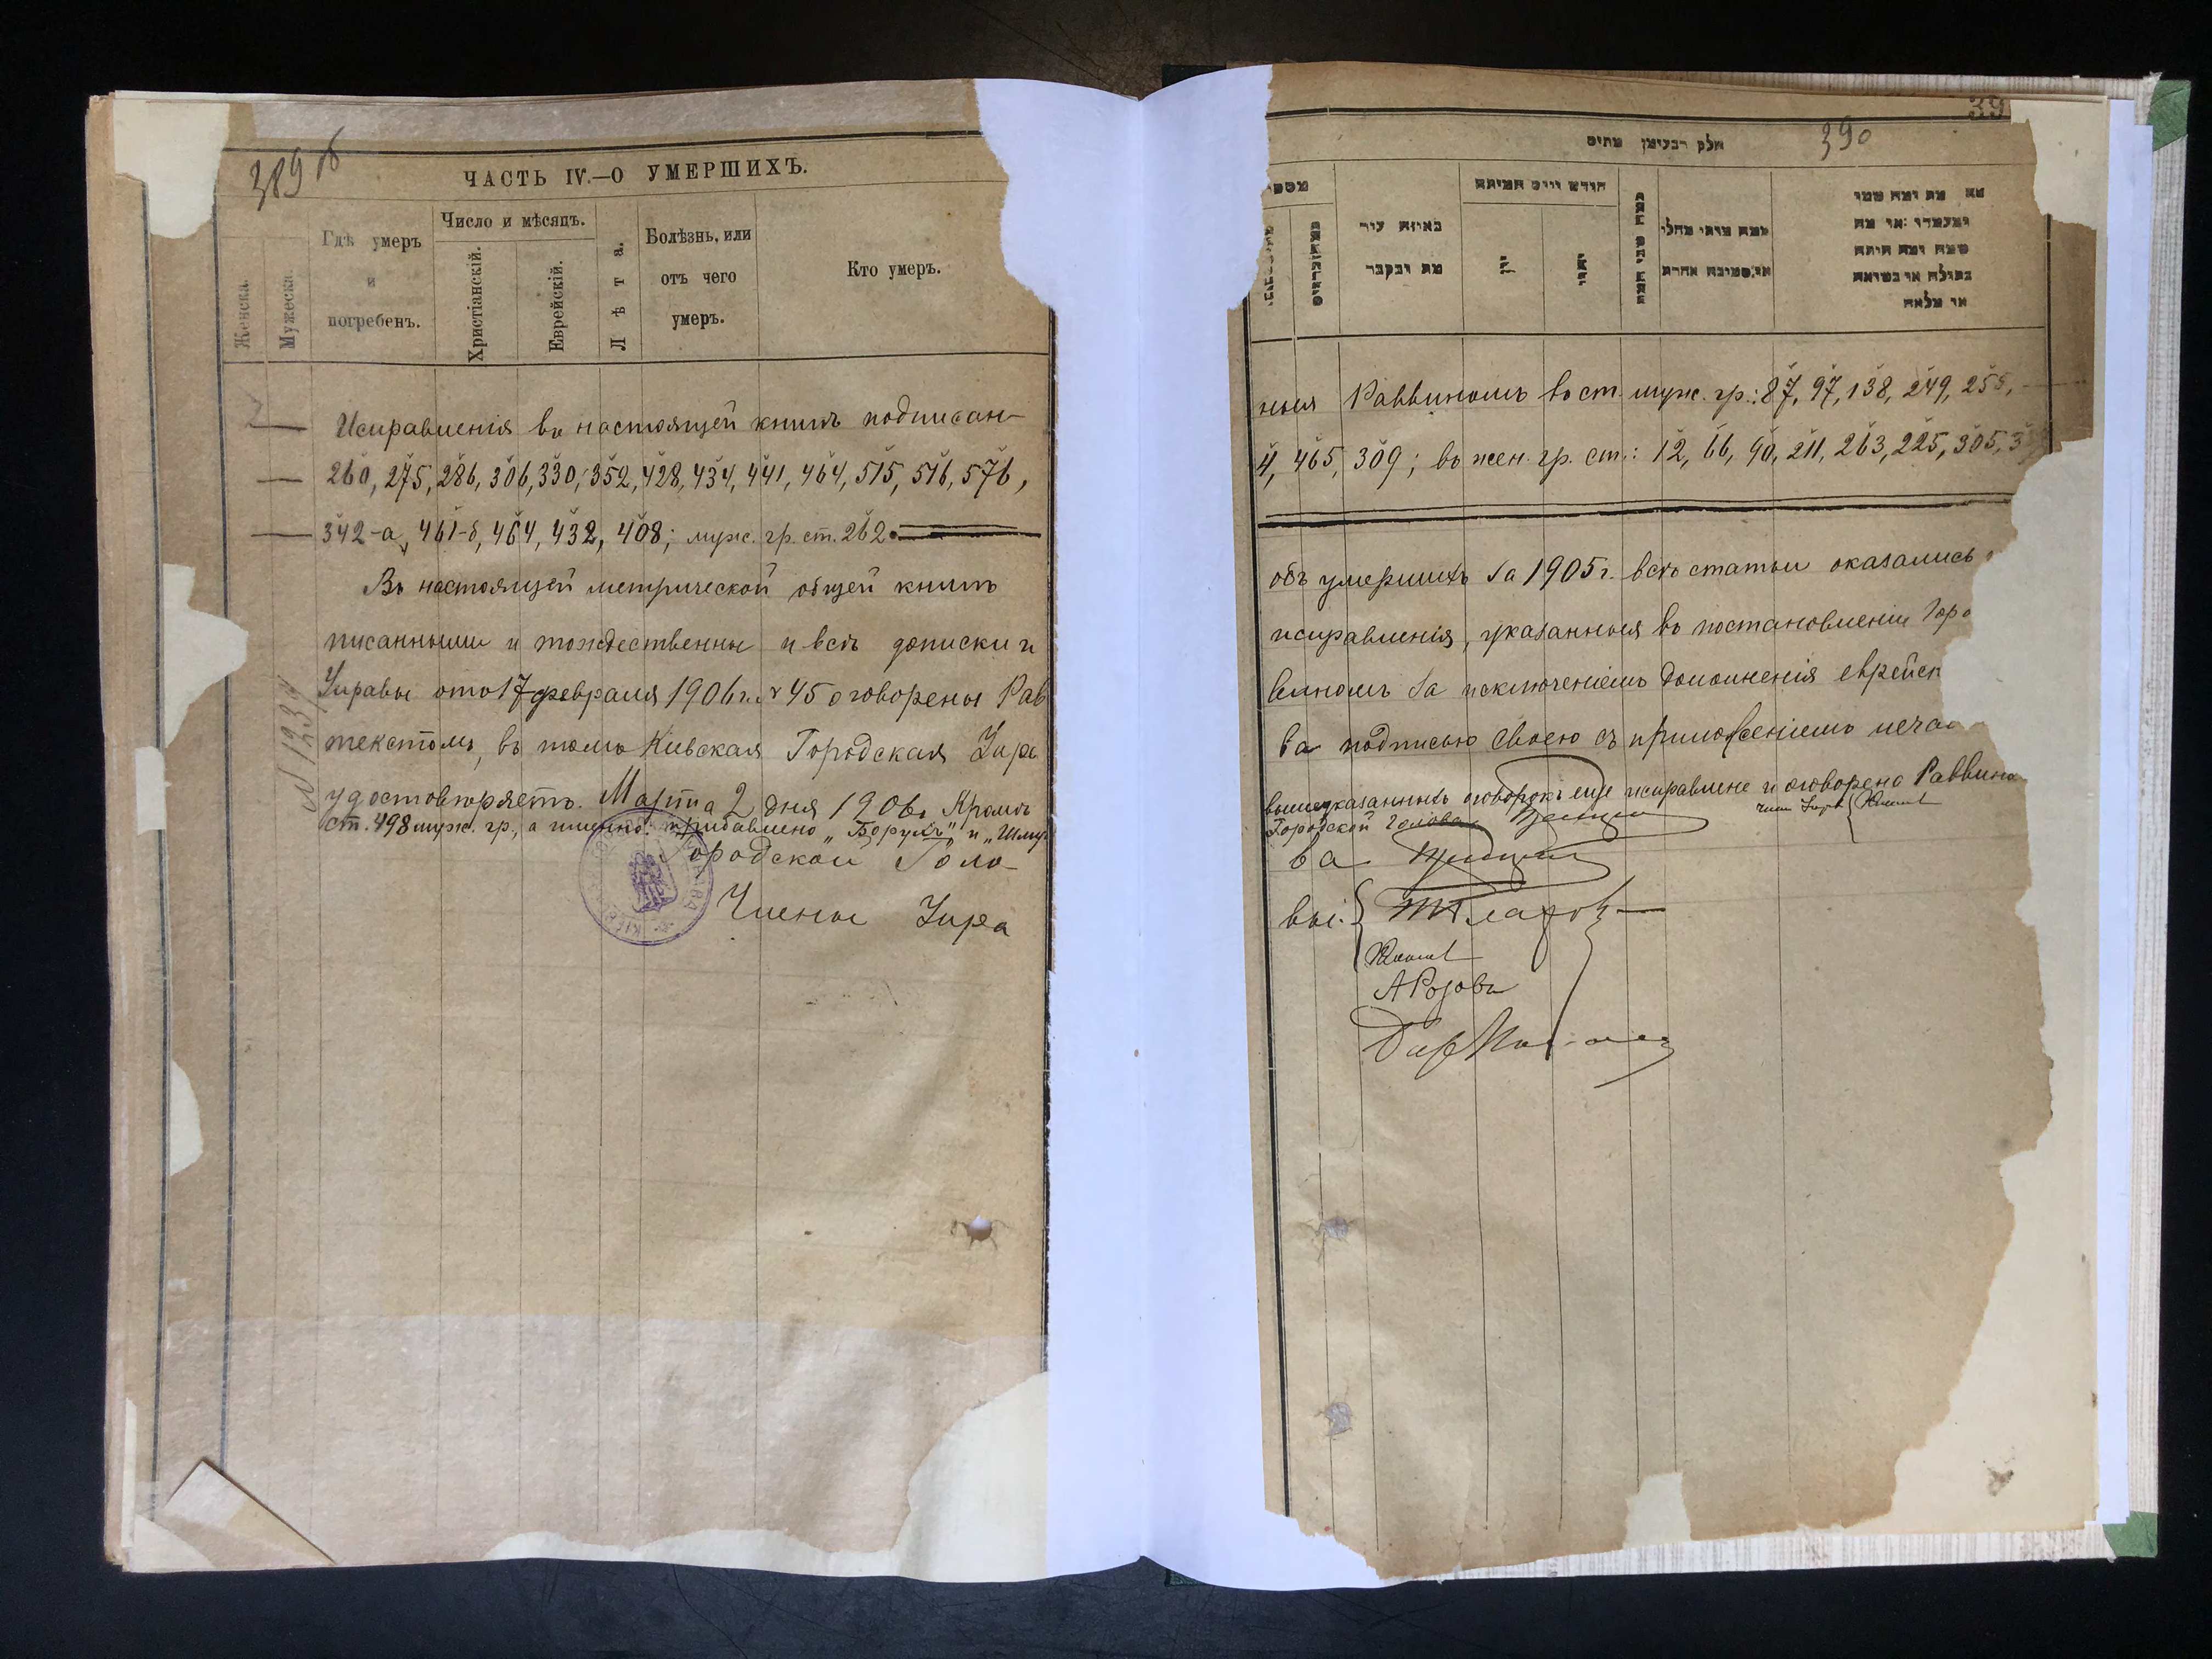 389 об
ЧАСТЬ IV.—О УМЕРШИХЪ.
Женска.
Мужеска.
Гдѣ умеръ
и
погребенъ.
Число и мѣсяцъ.
Христіанскій.
Еврейскій.
Лѣта.
Болѣзнь, или
отъ чего
умеръ.
Кто умеръ.
Исправленія въ настоящей книгѣ подписан-
260, 275, 286, 306, 330, 352, 428, 434, 441, 464, 515, 516, 576,
342-а, 461-б, 464, 432, 408; муж. гр. ст. 262.
Въ настоящей метрической общей книгѣ
писанными и тождественны и всѣ дописки и
Управы отъ 17 февраля 1906 г. № 45 оговорены Рав
текстомъ, въ томъ Кіевская Городская Упра
удостовѣряетъ. Марта 2 дня 1906 г. Кромѣ
ст. 498 муж. гр., а именно: прибавлено „Борухъ" и „Шмур
Городской Голо-
Члены Упра
39
390
חלק רבעימן מתים
מספר
באיזה עיר
מת ונקבר
חודש ויום המיתה
כמה שני חייו
ממה מיתי מחלי
או מסיבה אחרת
מה מת ומה שמו
ומעמדו או מה
שמה ומה היתה
בתולה או נשואה
או מלאה
ныя Раввиномъ въ ст. муж. гр.: 87, 97, 138, 249, 255,
4, 465, 309; въ жен. гр. ст.: 12, 66, 90, 211, 263, 225, 305, 3
объ умершихъ за 1905 г. всѣ статьи оказались
исправленія, указанныя въ постановленіи Горо
виномъ за исключеніемъ дополненія еврейск
ва подписью своею съ приложеніемъ печа
вышеуказанныхъ оговорокъ еще исправлене и оговорено Раввино
Городской Голова
член Упр.
ва
вы:
А Розовъ